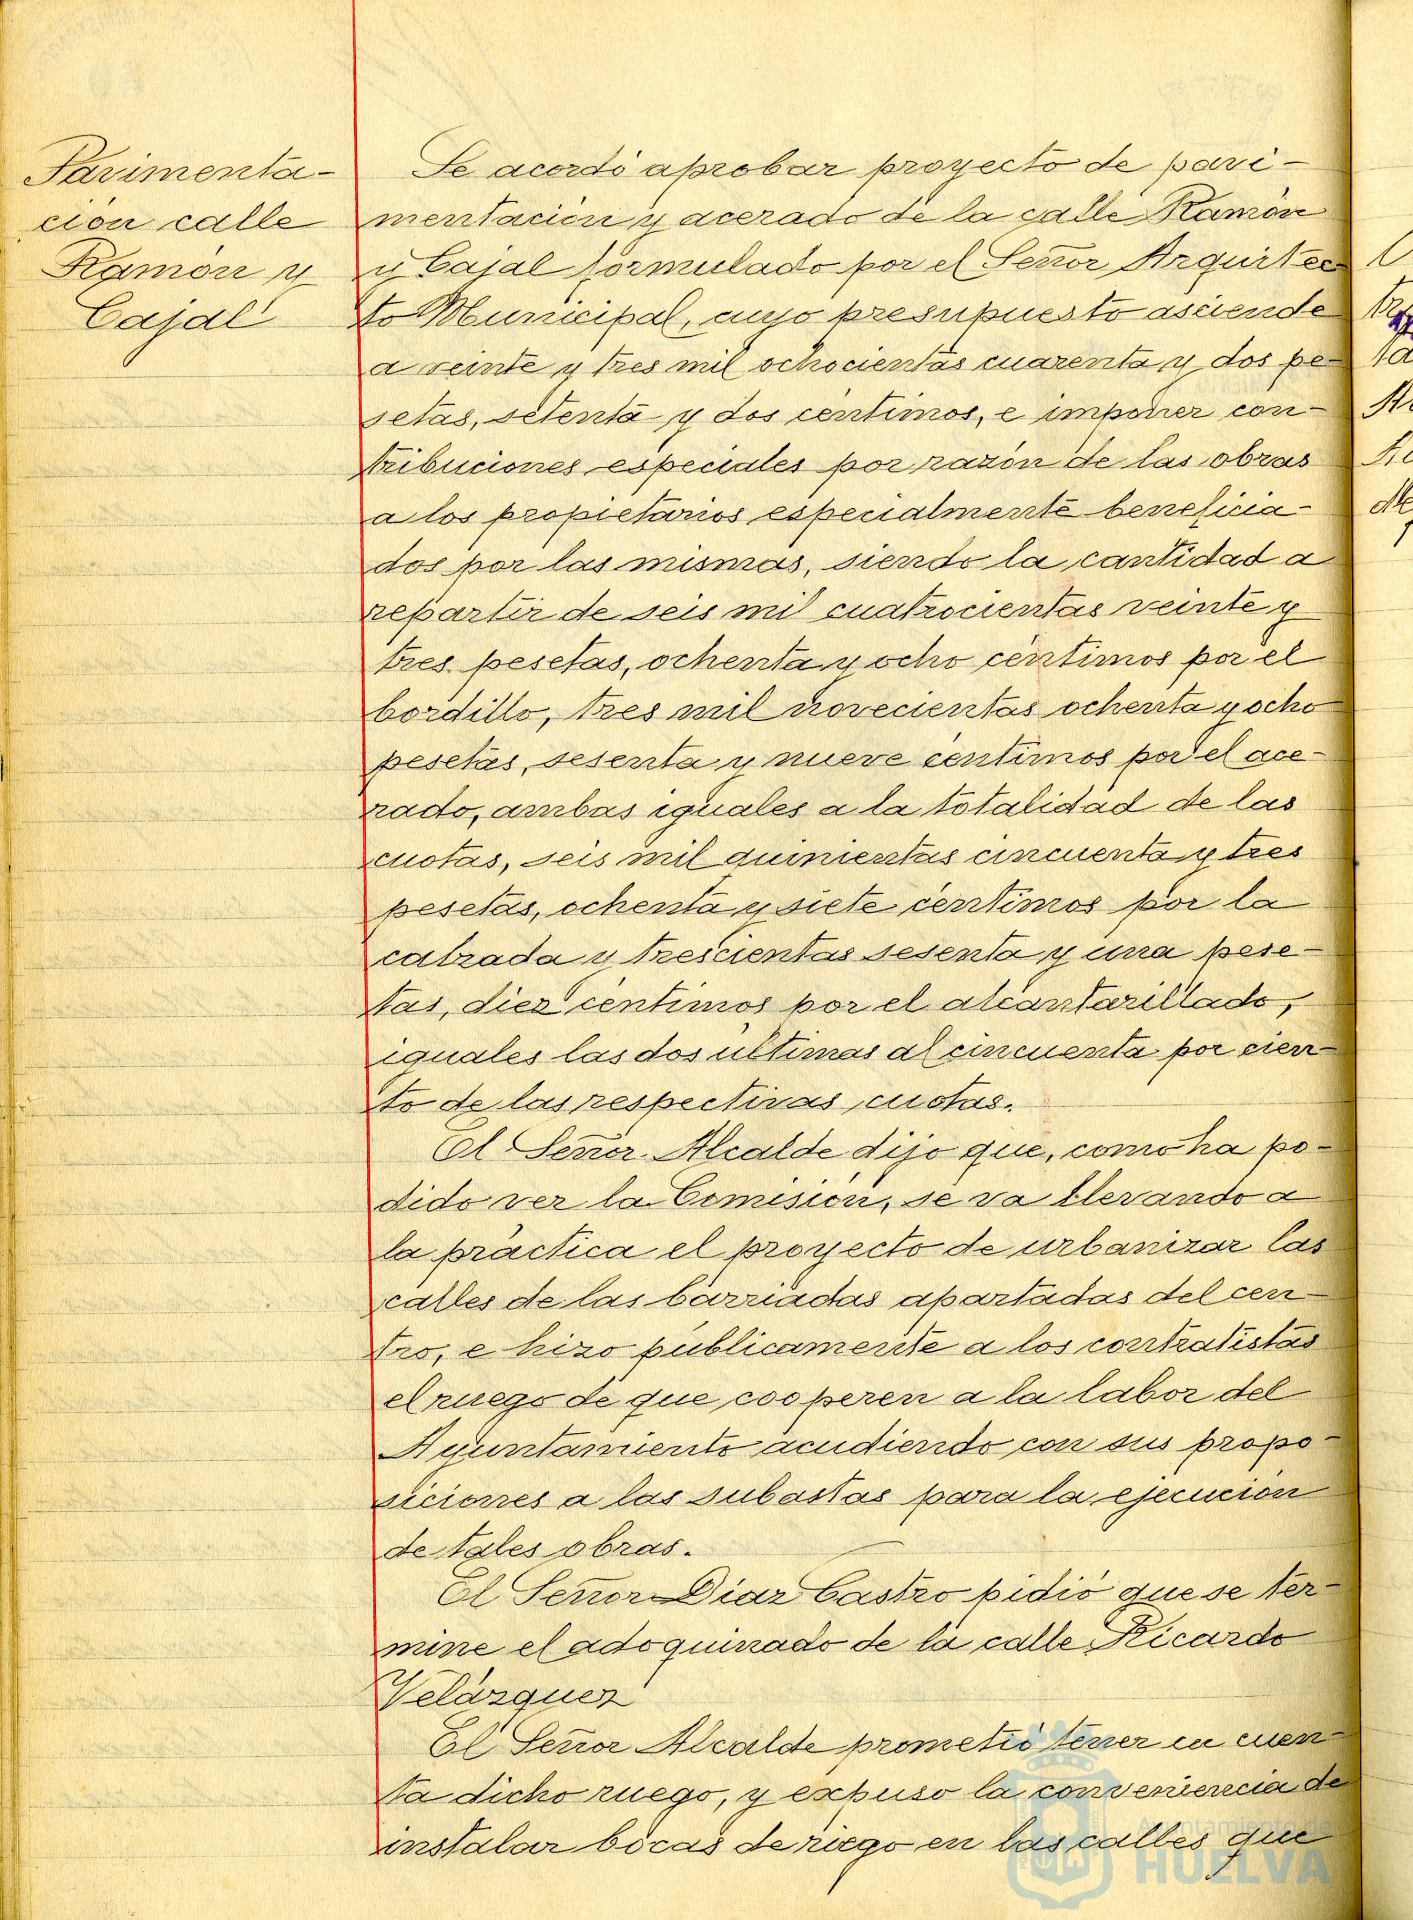 Pavimenta-
ción calle
Ramón y
Cajal
Se acordó aprobar proyecto de pavi-
mentación y acerado de la calle Ramón
y Cajal formulado por el Señor Arquitec-
to Municipal, cuyo presupuesto asciende
a veinte y tres mil ochocientas cuarenta y dos pe-
setas, setenta y dos céntimos, e imponer con-
tribuciones especiales por razón de las obras
a los propietarios especialmente beneficia-
dos por las mismas, siendo la cantidad a
repartir de seis mil cuatrocientas veinte y
tres pesetas, ochenta y ocho céntimos por el
bordillo, tres mil novecientas ochenta y ocho
pesetas, sesenta y nueve céntimos por el ace-
rado, ambas iguales a la totalidad de las
cuotas, seis mil quinientas cincuenta y tres
pesetas, ochenta y siete céntimos por la
calzada y trescientas sesenta y una pese-
tas, diez céntimos por el alcantarillado,
iguales las dos últimas al cincuenta por cien-
to de las respectivas cuotas.
El Señor Alcalde dijo que, como ha po-
dido ver la Comisión, se va llevando a
la práctica el proyecto de urbanizar las
calles de las barriadas apartadas del cen-
tro, e hizo públicamente a los contratistas
el ruego de que cooperen a la labor del
Ayuntamiento acudiendo con sus propo-
siciones a las subastas para la ejecución
de tales obras.
El Señor Díaz Castro pidió que se ter-
mine el adoquinado de la calle Ricardo
Velázquez
El Señor Alcalde prometió tener en cuen-
ta dicho ruego, y expuso la conveniencia de
instalar bocas de riego en las calles que
Ayuntamiento de
HUELVA